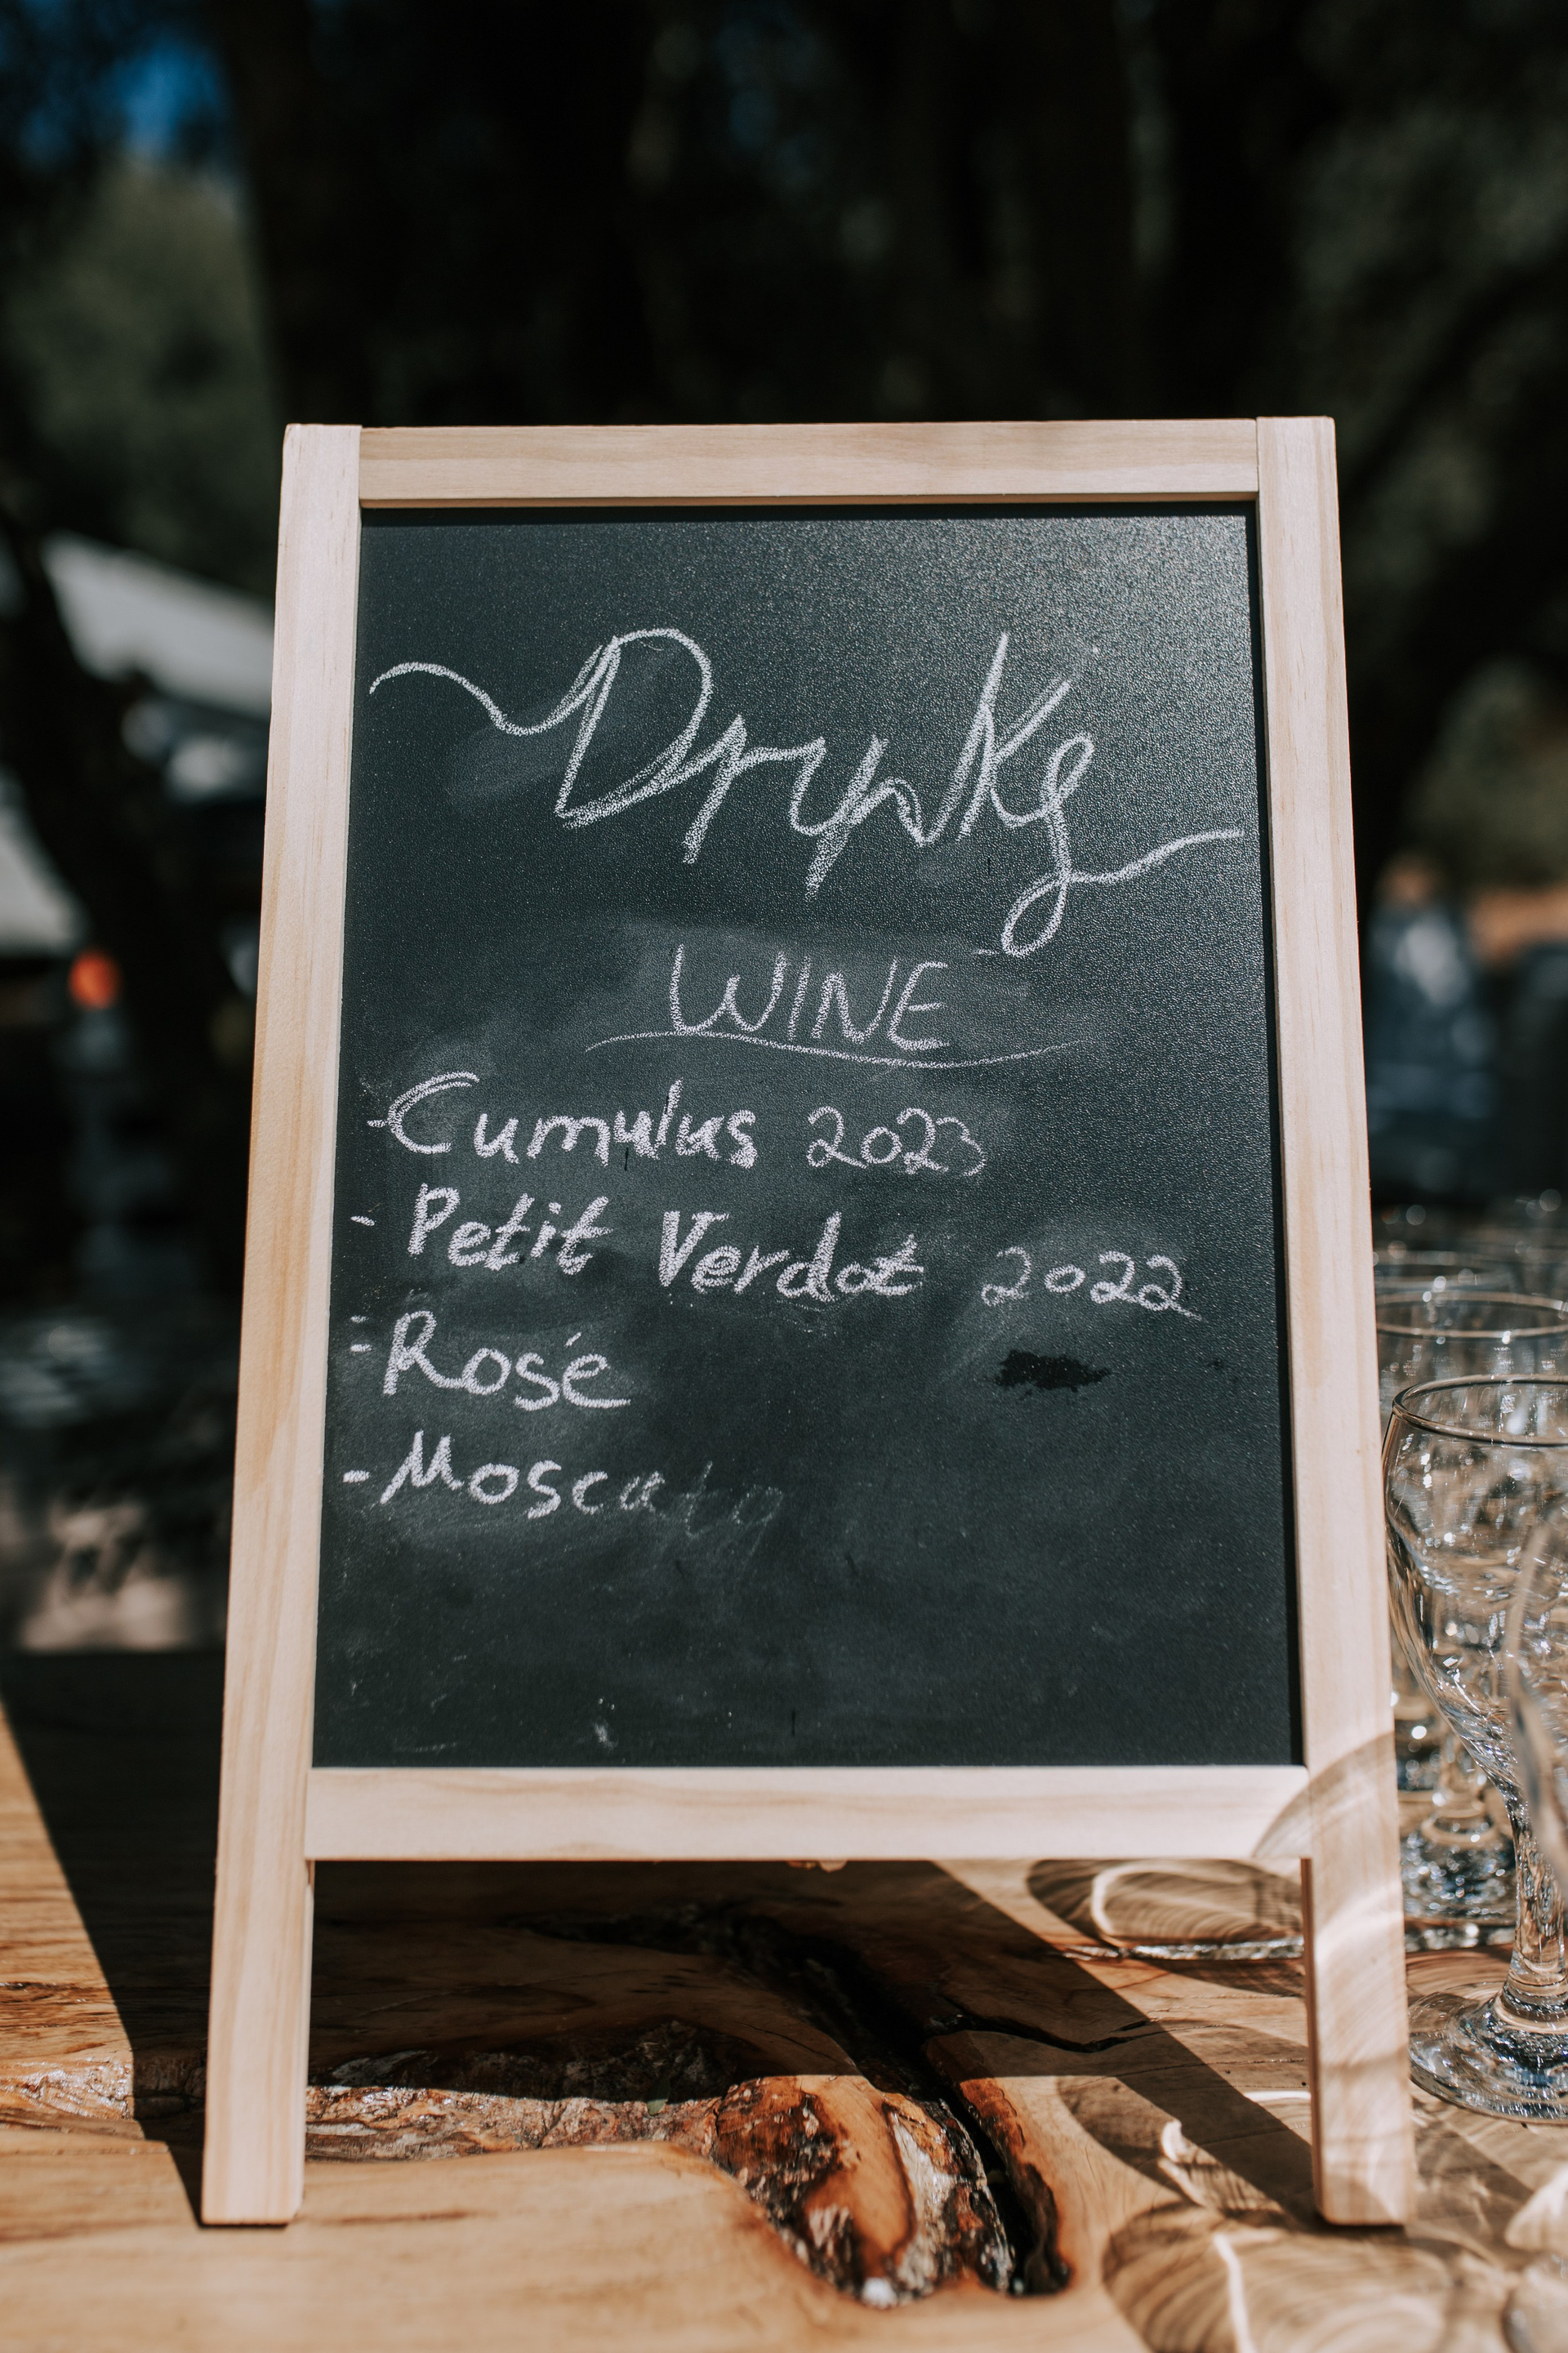 Drynks
WINE
- Cumulus 2023
- Petit Verdot 2022
- Rosé
- Moscato